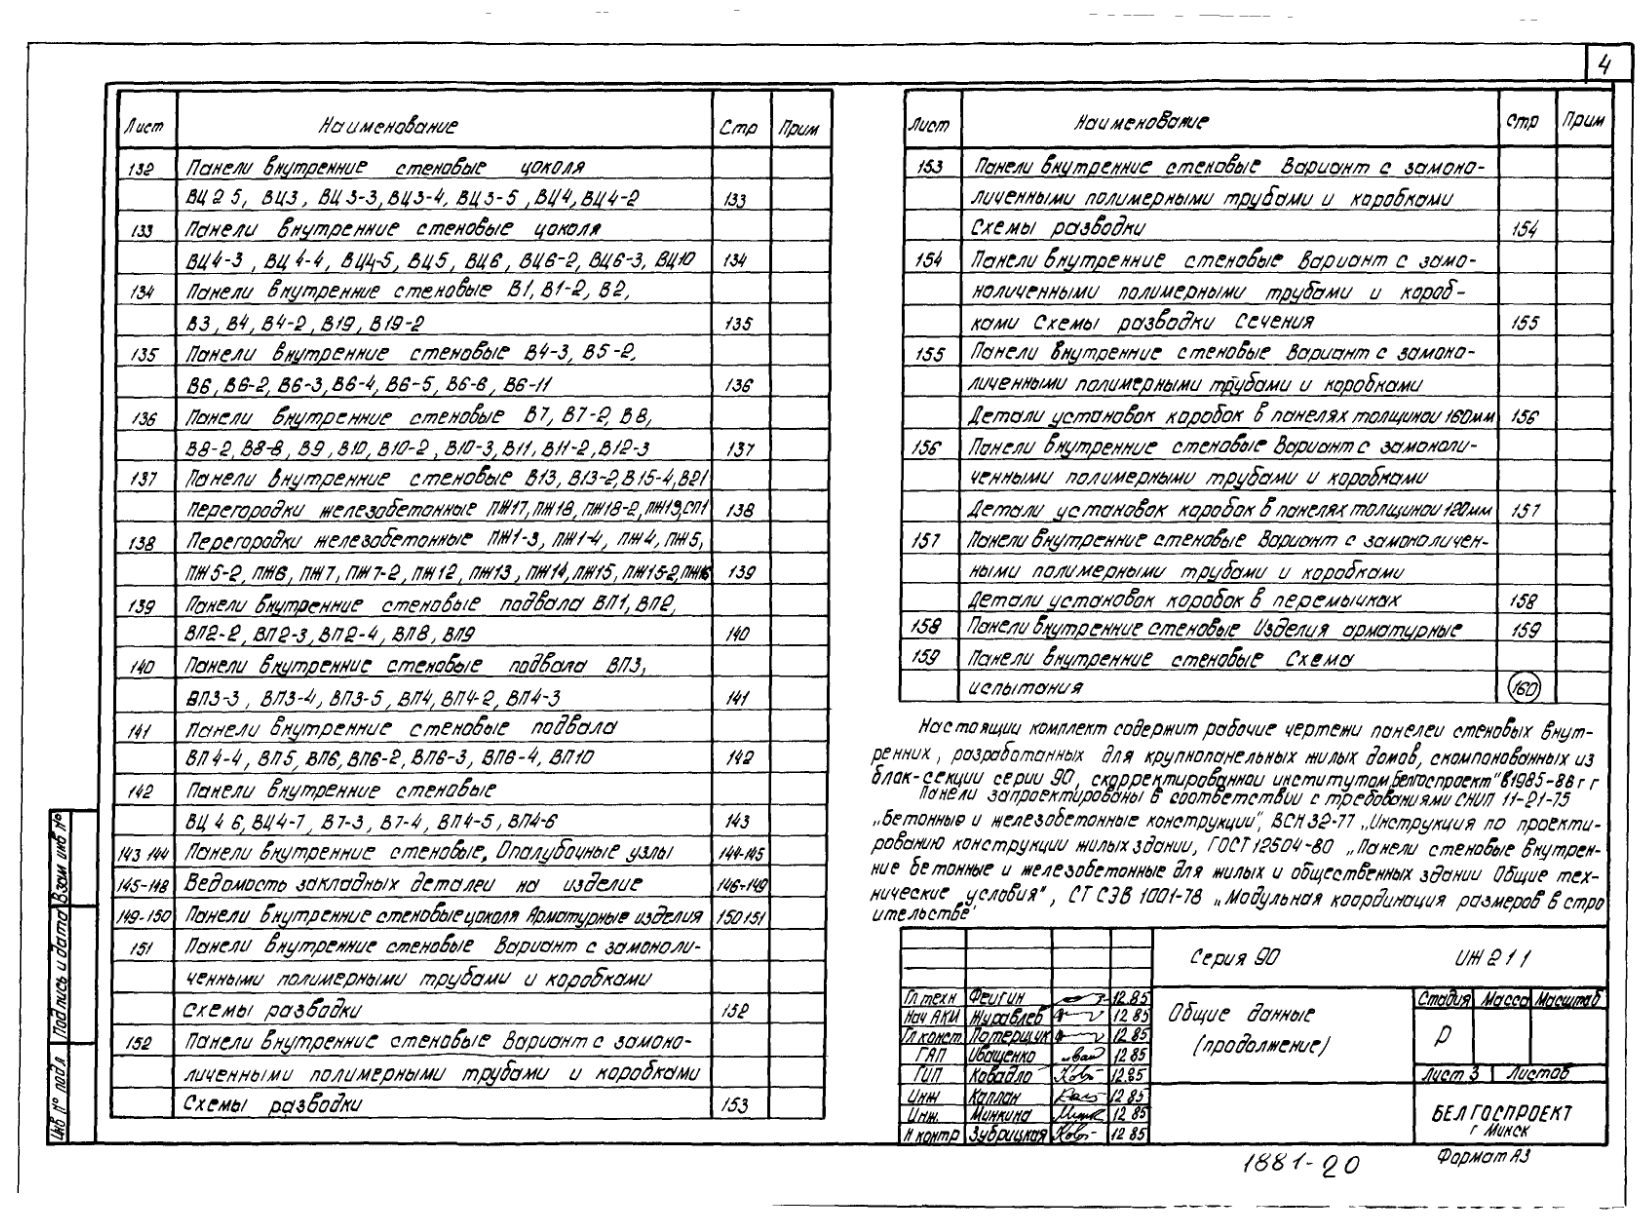 4
Лист Наименование Стр Прим
132 Панели внутренние стеновые цоколя
ВЦ 2 5, ВЦ3, ВЦ 3-3, ВЦ3-4, ВЦ3-5, ВЦ4, ВЦ4-2 133
133 Панели внутренние стеновые цоколя
ВЦ4-3, ВЦ 4-4, ВЦ4-5, ВЦ5, ВЦ6, ВЦ6-2, ВЦ6-3, ВЦ10 134
134 Панели внутренние стеновые В1, В1-2, В2,
В3, В4, В4-2, В19, В19-2 135
135 Панели внутренние стеновые В4-3, В5-2,
В6, В6-2, В6-3, В6-4, В6-5, В6-6, В6-11 136
136 Панели внутренние стеновые В7, В7-2, В8,
В8-2, В8-8, В9, В10, В10-2, В10-3, В11, В11-2, В12-3 137
137 Панели внутренние стеновые В13, В13-2, В15-4, В21
Перегородки железобетонные ПЖ17, ПЖ18, ПЖ18-2, ПЖ19, СП1 138
138 Перегородки железобетонные ПЖ1-3, ПЖ1-4, ПЖ4, ПЖ5,
ПЖ5-2, ПЖ6, ПЖ7, ПЖ7-2, ПЖ12, ПЖ13, ПЖ14, ПЖ15, ПЖ15-2, ПЖ16 139
139 Панели внутренние стеновые подвала ВП1, ВП2,
ВП2-2, ВП2-3, ВП2-4, ВП8, ВП9 140
140 Панели внутренние стеновые подвала ВП3,
ВП3-3, ВП3-4, ВП3-5, ВП4, ВП4-2, ВП4-3 141
141 Панели внутренние стеновые подвала
ВП4-4, ВП5, ВП6, ВП6-2, ВП6-3, ВП6-4, ВП10 142
142 Панели внутренние стеновые
ВЦ 4 6, ВЦ4-7, В7-3, В7-4, ВП4-5, ВП4-6 143
143 144 Панели внутренние стеновые, Опалубочные узлы 144-145
145-148 Ведомость закладных деталеи на изделие 146-149
149-150 Панели внутренние стеновые цоколя Арматурные изделия 150 151
151 Панели внутренние стеновые Вариант с замоноли-
ченными полимерными трубами и коробками
Схемы разводки 152
152 Панели внутренние стеновые Вариант с замоно-
личенными полимерными трубами и коробками
Схемы разводки 153
Лист Наименование Стр Прим
153 Панели внутренние стеновые Вариант с замоно-
личенными полимерными трубами и коробками
Схемы разводки 154
154 Панели внутренние стеновые Вариант с замо-
ноличенными полимерными трубами и короб-
ками Схемы разводки Сечения 155
155 Панели внутренние стеновые Вариант с замоно-
личенными полимерными трубами и коробками
Детали установок коробок в панелях толщинои 160мм 156
156 Панели внутренние стеновые Вариант с замоноли-
ченными полимерными трубами и коробками
Детали установок коробок в панелях толщинои 120мм 157
157 Панели внутренние стеновые Вариант с замоноличен-
ными полимерными трубами и коробками
Детали установок коробок в перемычках 158
158 Панели внутренние стеновые Изделия арматурные 159
159 Панели внутренние стеновые Схема
испытания 160
Настоящии комплект содержит рабочие чертежи панелеи стеновых внут-
ренних, разработанных для крупнопанельных жилых домов, скомпонованных из
блок-секции серии 90, скорректированнои институтом „Белгоспроект" в 1985-86 г г
Панели запроектированы в соответствии с требованиями СНиП 11-21-75
„Бетонные и железобетонные конструкции", ВСН 32-77 „Инструкция по проекти-
рованию конструкции жилых здании, ГОСТ 12504-80 „Панели стеновые внутрен-
ние бетонные и железобетонные для жилых и общественных здании Общие тех-
нические условия", СТ СЭВ 1001-78 „Модульная координация размеров в стро
ительстве"
Гл техн Феигин 12.85
Нач АКИ Журавлев 12 85
Гл конст Потерщук 12 85
ГАП Иващенко 12 85
ГИП Ковадло 12.85
Инж Каплан 12 85
Инж. Минкина 12 85
Н контр Зубрицкая 12 85
Серия 90 ИЖ 2 1 1
Общие данные
(продолжение)
Стадия Масса Масштаб
Р
Лист 3 Листов
БЕЛГОСПРОЕКТ
г Минск
1881-20 Формат А3
Взам инв №
Подпись и дата
Инв № подл